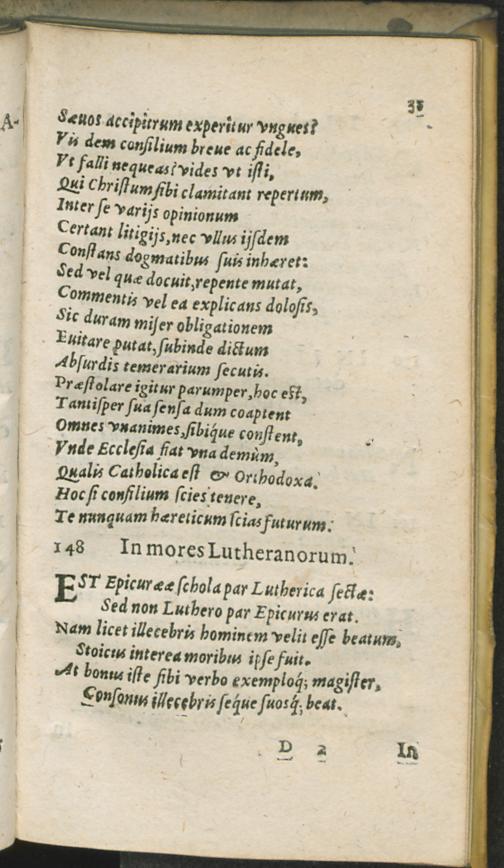 35
A-
Sæuos accipitrum experitur vngues?
Vis dem consilium breue ac fidele,
Vt falli nequeas? vides vt isti,
Qui Christum sibi clamitant repertum,
Inter se varijs opinionum
Certant litigijs, nec vllus ijsdem
Constans dogmatibus suis inhæret:
Sed vel quæ docuit, repente mutat,
Commentis vel ea explicans dolosis,
Sic duram miser obligationem
Euitare putat, subinde dictum
Absurdis temerarium secutis.
Præstolare igitur parumper, hoc est,
Tantisper sua sensa dum coaptent
Omnes vnanimes, sibíque constent,
Vnde Ecclesia fiat vna demùm,
Qualis Catholica est & Orthodoxa.
Hoc si consilium scies tenere,
Te nunquam hæreticum scias futurum.
148 In mores Lutheranorum.
EST Epicurææ schola par Lutherica sectæ:
Sed non Luthero par Epicurus erat.
Nam licet illecebris hominem velit esse beatum,
Stoicus interea moribus ipse fuit.
At bonus iste sibi verbo exemploq; magister,
Consonus illecebris séque suosq́; beat.
D 2 In